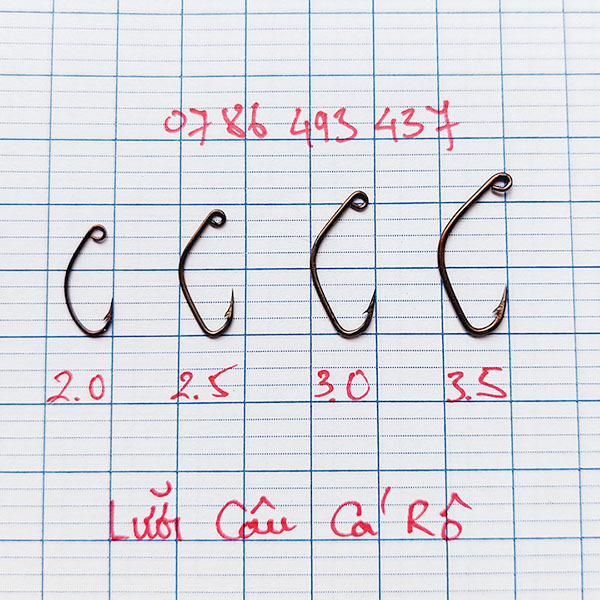 0786 493 437
2.0 2.5 3.0 3.5
Lưỡi Câu Cá Rô